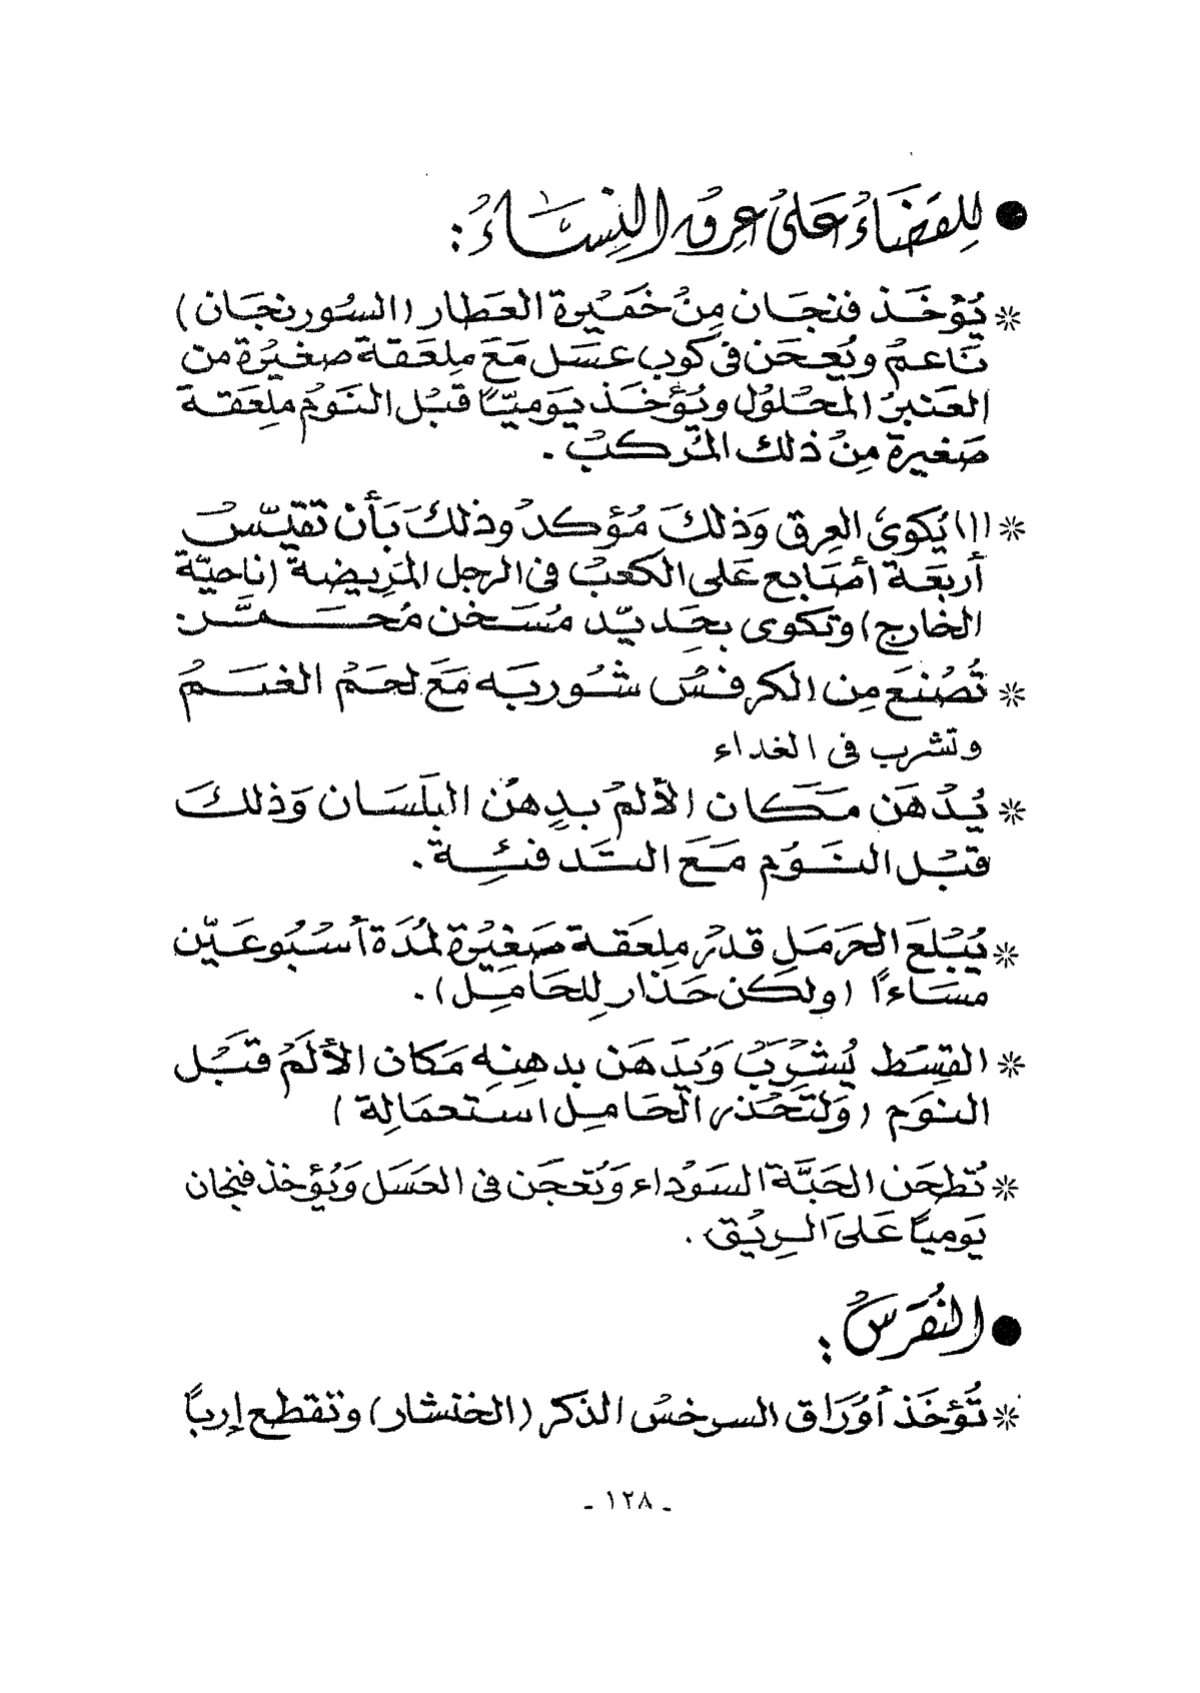 ● لِلقَضَاءُ عَلىُ عِرقُ النِسَاءُ :
* يُؤخَذ فنجَان مِنُ خَمَيْرة العَطار (السُورنجَان)
نَاعمُ ويُعجَن في كوب عسَل مَعَ مِلعَقة صغيُرة من
العَنبرُ المحُلوُل ويُؤخَذ يَوَميّاً قبُل النَومُ ملِعَقة
صَغيرة مِنُ ذلك المُركبُ .
* (١) يُكوىَ العِرق وَذلكَ مُؤكدُ وذلكَ بَأن تقيّسُ
أربعَة أصَابع عَلى الكعبُ في الرجل المَرِيضة (ناحيّة
الخارج) وتكوى بحَديّد مُسَخن مُحمَّر:
* تُصُنعَ مِن الكرفسُ شُوربَه مَعَ لحَمُ الغسَمُ
وتشرب في الغداء
* يُدُهَن مَكَان الألمُ بدِهنُ البَلَسَان وَذلكَ
قبُل النَوُم مَعَ التَدفئِة .
* يُبُلَع الحَرمَل قدرُ ملِعَقة صَغِيُرة لمُدَة أسُبُوعَيّن
مسَاءاً (ولكن حَذار لِلحَامِل) .
* القِسَط يُشرَبُ وَيُدَهَن بدهِنِه مَكان الألَمُ قبَل
النوَم (وَلتَحُذر الحَامِل استعمَالِة)
* تُطحَن الحَبَّة السَوُداء وَتُعجَن في العَسَل وَيُؤخذ فنجان
يَومياً عَلىَ الرِيُق .
● النُقرَسُ :
* تُؤخَذ أوُرَاق السرخسُ الذكر (الخنشار) وتقطع إرباً
- ١٢٨ -